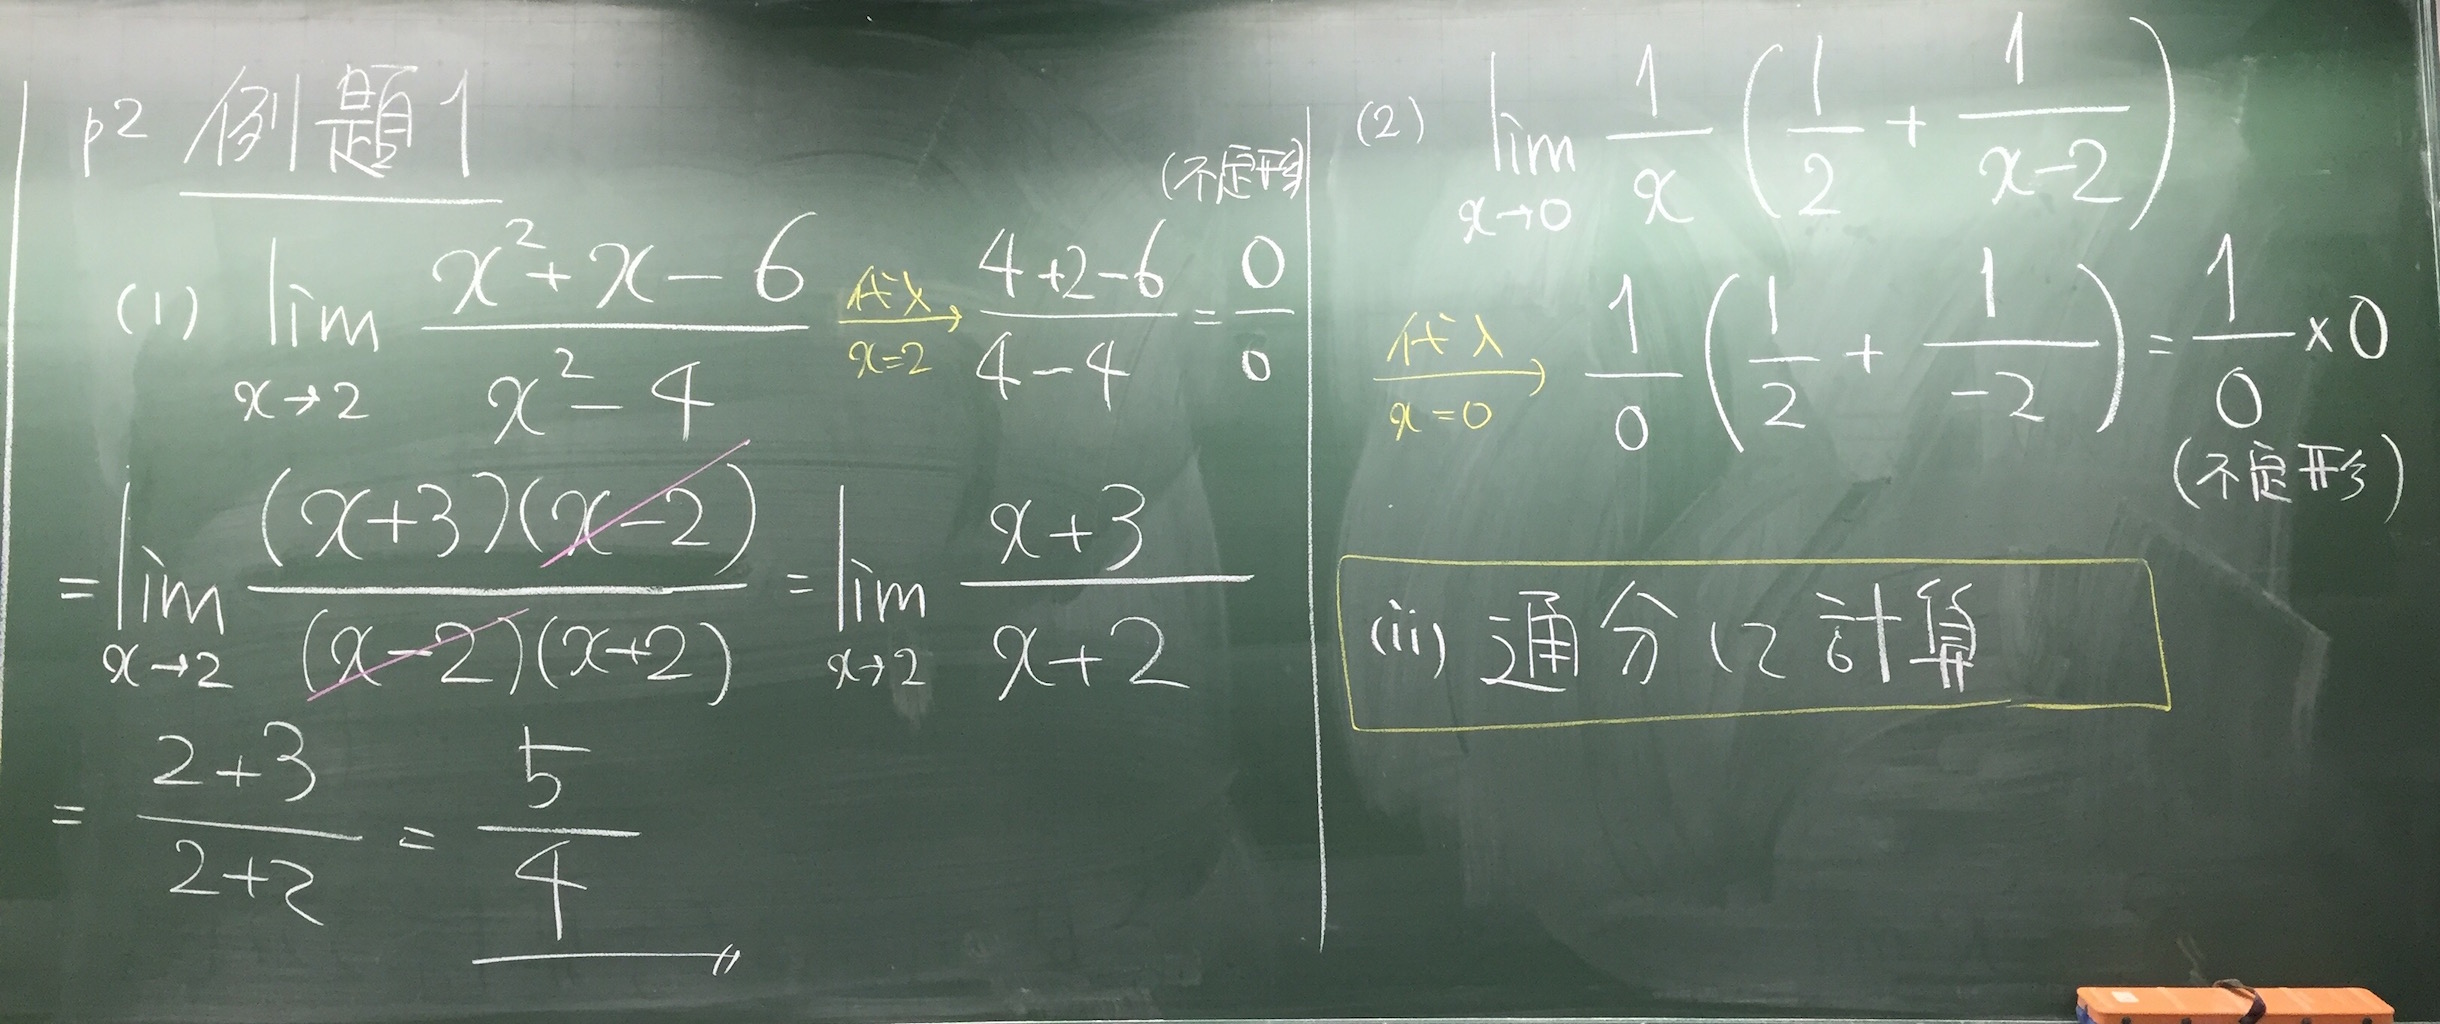 p2 例題1
(1) lim x→2 (x²+x-6)/(x²-4) 代入 x=2 → (4+2-6)/(4-4) = 0/0 (不定形)
= lim x→2 ((x+3)(x-2))/((x-2)(x+2)) = lim x→2 (x+3)/(x+2)
= (2+3)/(2+2) = 5/4
(2) lim x→0 1/x (1/2 + 1/(x-2))
代入 x=0 → 1/0 (1/2 + 1/-2) = 1/0 × 0
(不定形)
(ii) 通分して計算